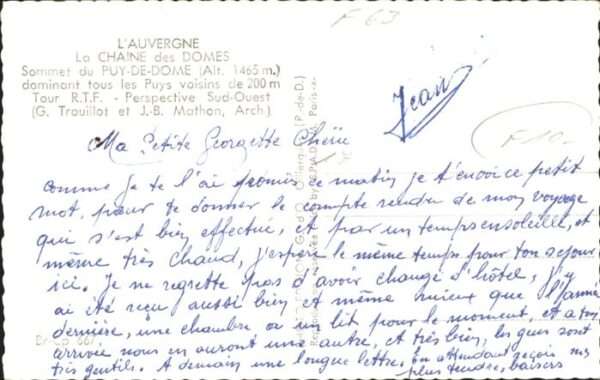 F 63
L'AUVERGNE
La CHAINE des DOMES
Sommet du PUY-DE-DOME (Alt. 1465 m.)
dominant tous les Puys voisins de 200 m
Tour R.T.F. - Perspective Sud-Ouest
(G. Trouillot et J.-B. Mathon, Arch.)
Jean
F 10
Ma Petite Georgette Chérie
comme je te l'ai promis ce matin je t'envoie ce petit
mot, pour te donner le compte rendu de mon voyage
qui s'est bien effectué, et par un temps ensoleillé, et
même très chaud, j'espère le même temps pour ton séjour
ici. Je ne regrette pas d'avoir changé d'hôtel, j'y
ai été reçu aussi bien et même mieux que l'année
dernière, une chambre ou un lit pour le moment, et a ton
arrivée nous en aurons une autre, et très bien, les gens sont
très gentils. A demain une longue lettre, en attendant reçois mes
plus tendres baisers